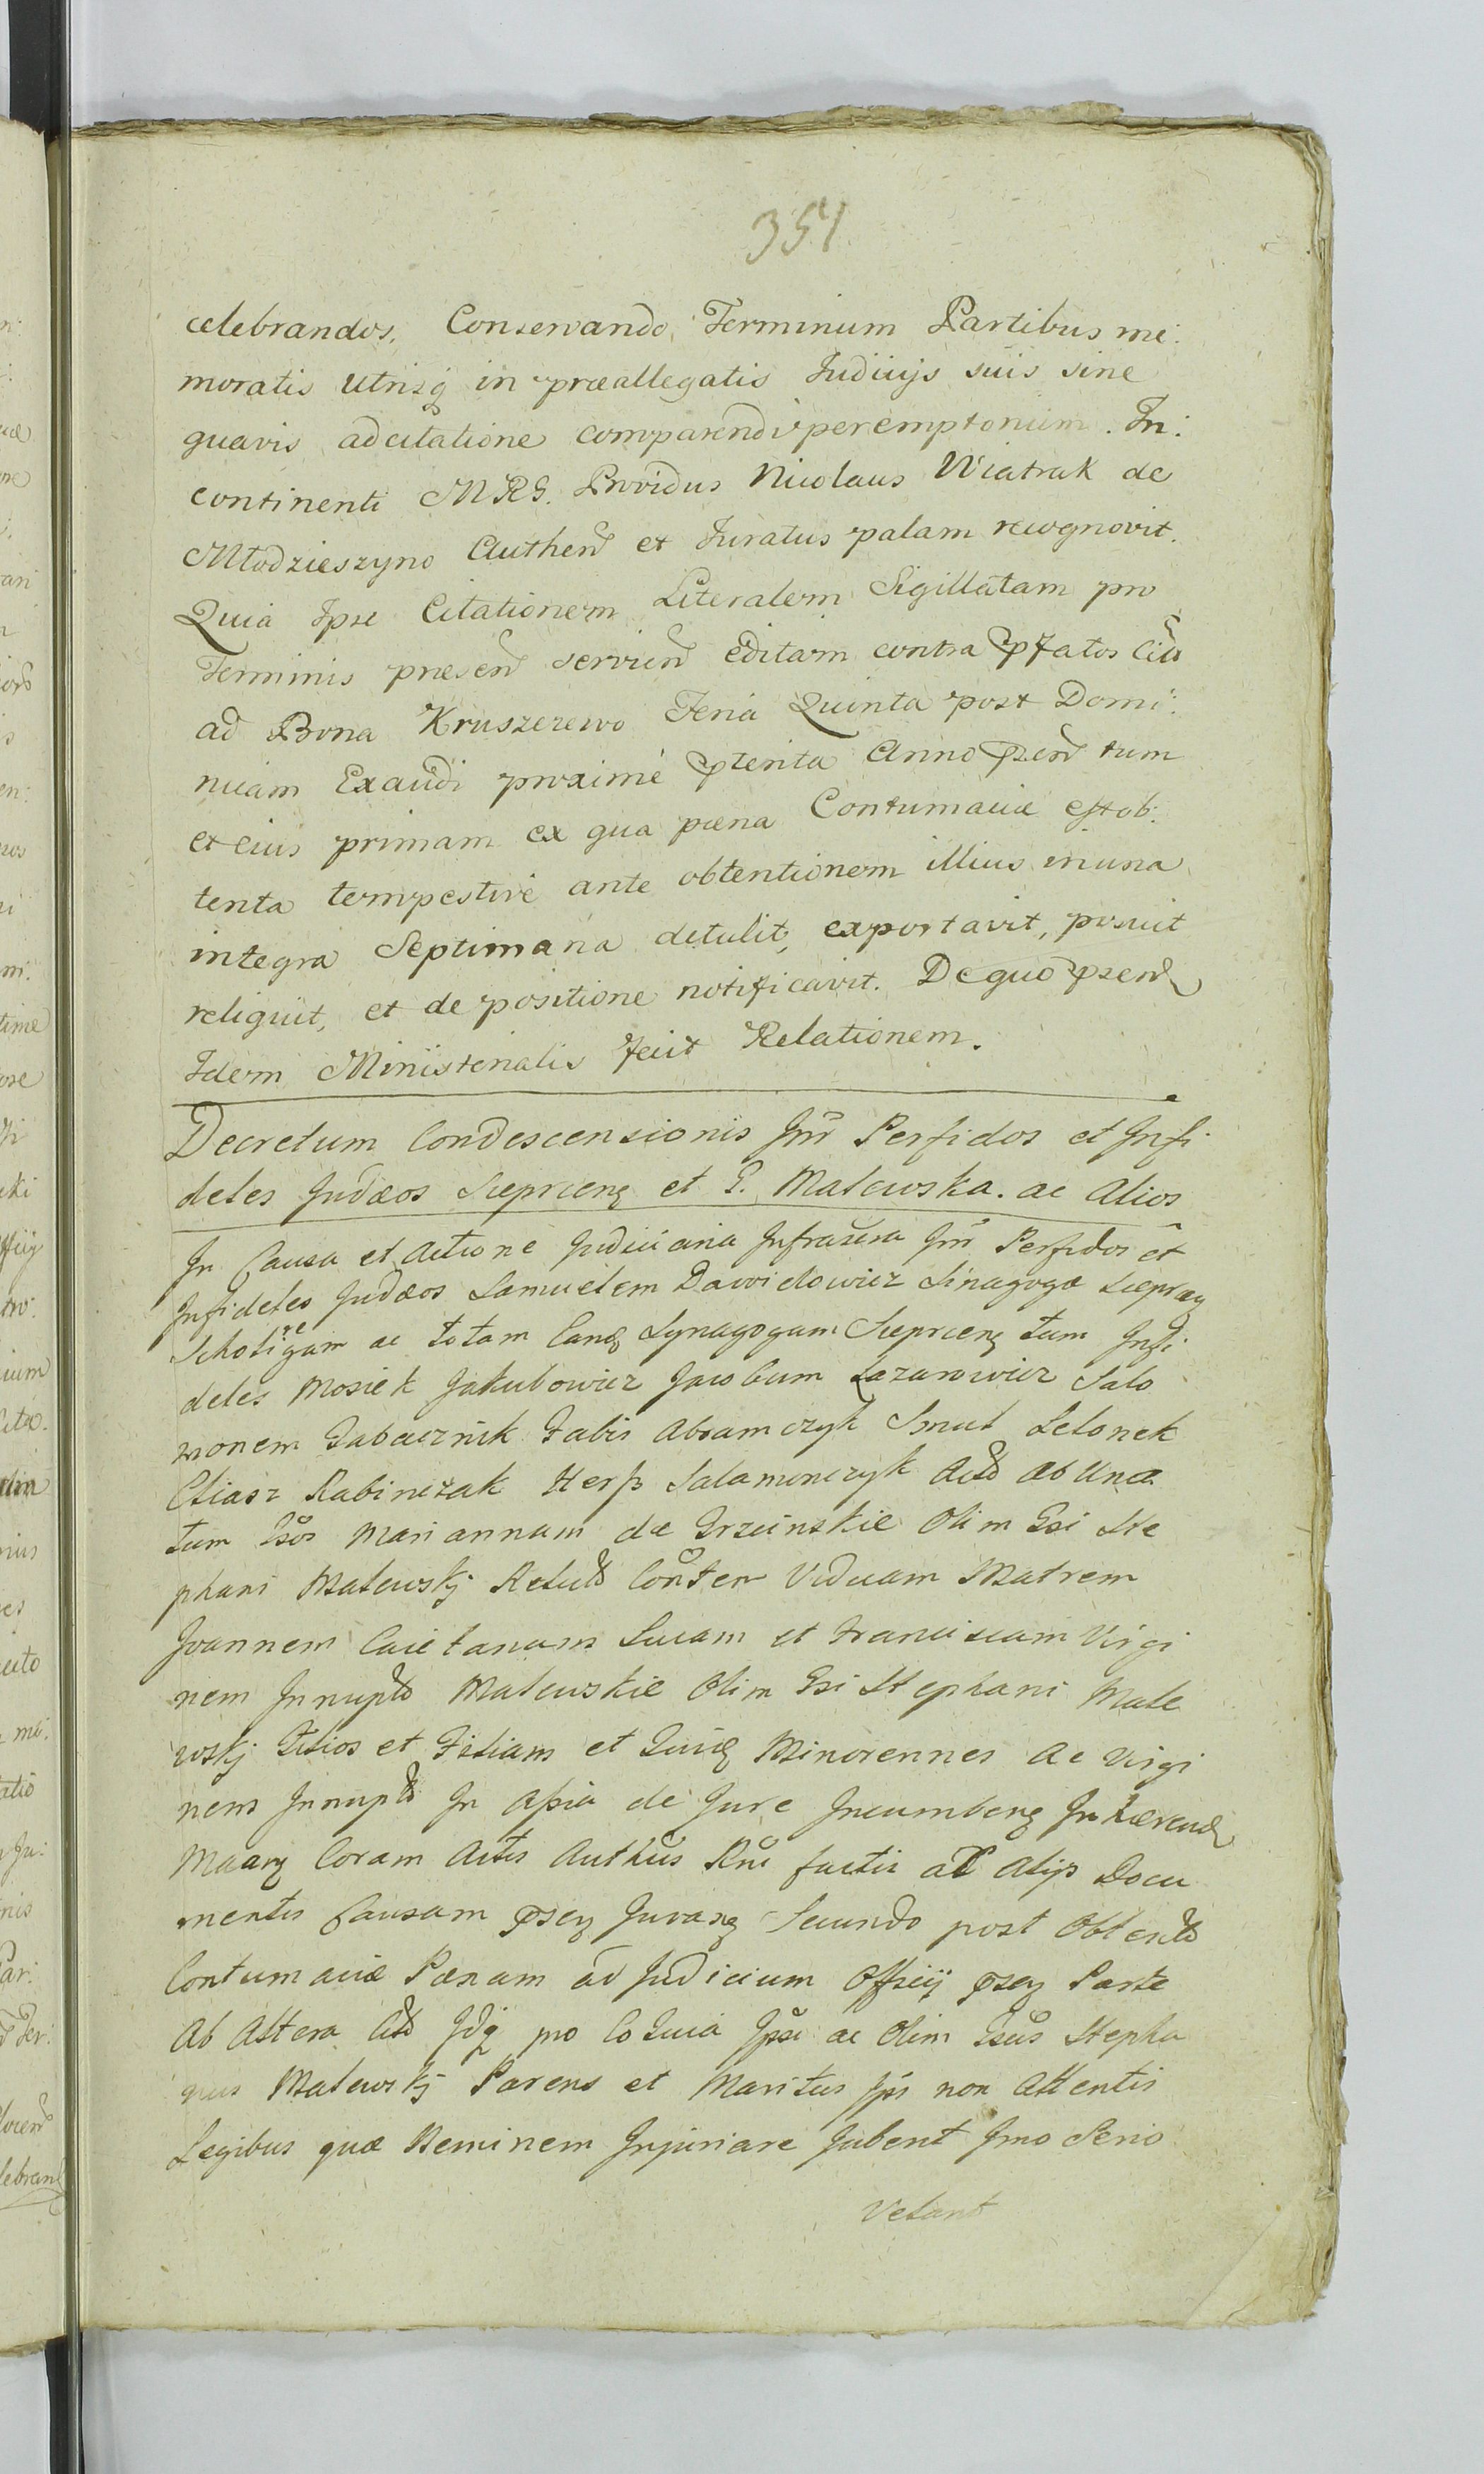 351
celebrandos, Conservando Terminum Partibus me:
moratis utrisq in præallegatis Judicijs suis sine
quavis adcitatione comparendi peremptorium. In:
continenti MRG. Providus Nicolaus Wiatrak de
Młodzieszyno Authen et Juratus palam recognovit.
Quia Ipse Citationem Literalem Sigillatam pro
Terminis præsen servien editam contra pfatos Cit
ad Bona Kruszczewo Feria Quinta post Domi:
nicam Exaudi proxime pterita Anno psen tum
et eius primam ex qua pæna Contumaciæ est ob:
tenta tempestive ante obtentionem illius in una
integra Septimana detulit, exportavit, posuit
reliquit, et de positione notificavit. De quo psen
Idem Ministerialis fecit Relationem.
Decretum Condescensionis Inr Perfidos et Infi
deles Judæos Sieprcens et G. Malewska. ac Alios
In Causa et Actione Judiciaria Infrascra Inr Perfidos et
Infideles Judæos Samuelem Dawidowicz Sinagogæ Sieprcen
Schoti re gam ac totam Eandq Synagogam Sieprcens tum Infi
deles Mosiek Jakubowicz Jacobum Lazarowicz Salo
monem Tabacznik Fabis Abramczyk Smul Lelonek
Eliasz Rabinczak Hersz Salamonczyk Acto ab Una
tum Gsos Mariannam de Grzcinskie Olim Gsi Ste
phani Malewskj Relicto Conten Viduam Matrem
Joannem Caietanum Lucam et Franciscam Virgi
nem Innupto Malewskie Olim Gsi Stephani Male
wskj Filios et Filiam et Quidq Minorennes ac Virgi
nem Innupto In Assia de Jure Incumbenq Inhærend
Coram Actis Authcis Rni factis ac Alijs Docu
mentis Causam psen Juvanq Secundo post Obtento
Contumaciæ Pænam ad Judicium Officij psen Parte
Ab Altera Cito Idq pro Eo Quia Ipsi ac Olim Gsus Stepha
nus Malewskj Parens et Maritus Ips non Attentis
Legibus quæ Neminem Injuriare Jubent Imo Serio
Vetant